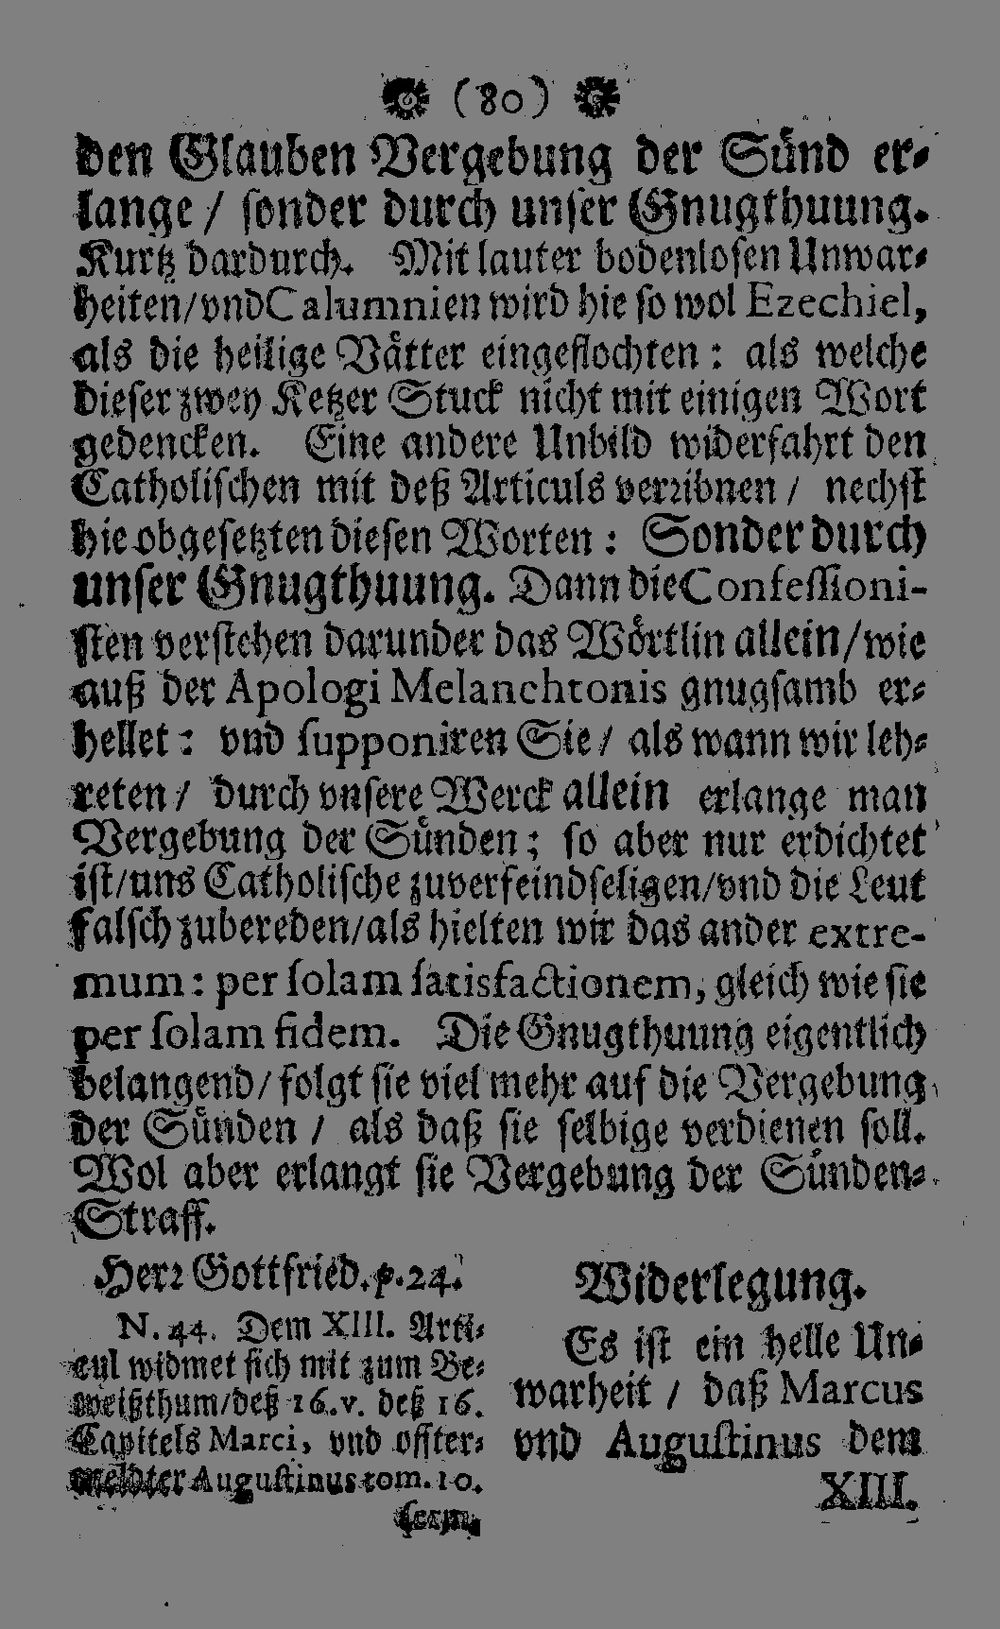 (80)
den Glauben Vergebung der Sünd er-
lange / sonder durch unser Gnugthuung.
Kurtz dardurch. Mit lauter bodenlosen Unwar-
heiten/vnd Calumnien wird hie so wol Ezechiel,
als die heilige Vätter eingeflochten : als welche
dieser zwey Ketzer Stuck nicht mit einigen Wort
gedencken. Eine andere Unbild widerfahrt den
Catholischen mit deß Articuls verribnen / nechst
hie obgesetzten diesen Worten : Sonder durch
unser Gnugthuung. Dann die Confessioni-
sten verstehen darunder das Wörtlin allein/wie
auß der Apologi Melanchtonis gnugsamb er-
hellet : vnd supponiren Sie / als wann wir leh-
reten / durch vnsere Werck allein erlange man
Vergebung der Sünden ; so aber nur erdichtet
ist/uns Catholische zuverfeindseligen/vnd die Leut
falsch zubereden/als hielten wir das ander extre-
mum : per solam satisfactionem, gleich wie sie
per solam fidem. Die Gnugthuung eigentlich
belangend/folgt sie viel mehr auf die Vergebung
der Sünden / als daß sie selbige verdienen soll.
Wol aber erlangt sie Vergebung der Sünden-
Straff.
Herr Gottfried. p. 24.
N. 44. Dem XIII. Arti-
cul widmet sich mit zum Be-
weißthum/deß 16. v. deß 16.
Capitels Marci, vnd offter-
meldter Augustinus tom. 10.
serm.
Widerlegung.
Es ist ein helle Un-
warheit / daß Marcus
vnd Augustinus dem
XIII.